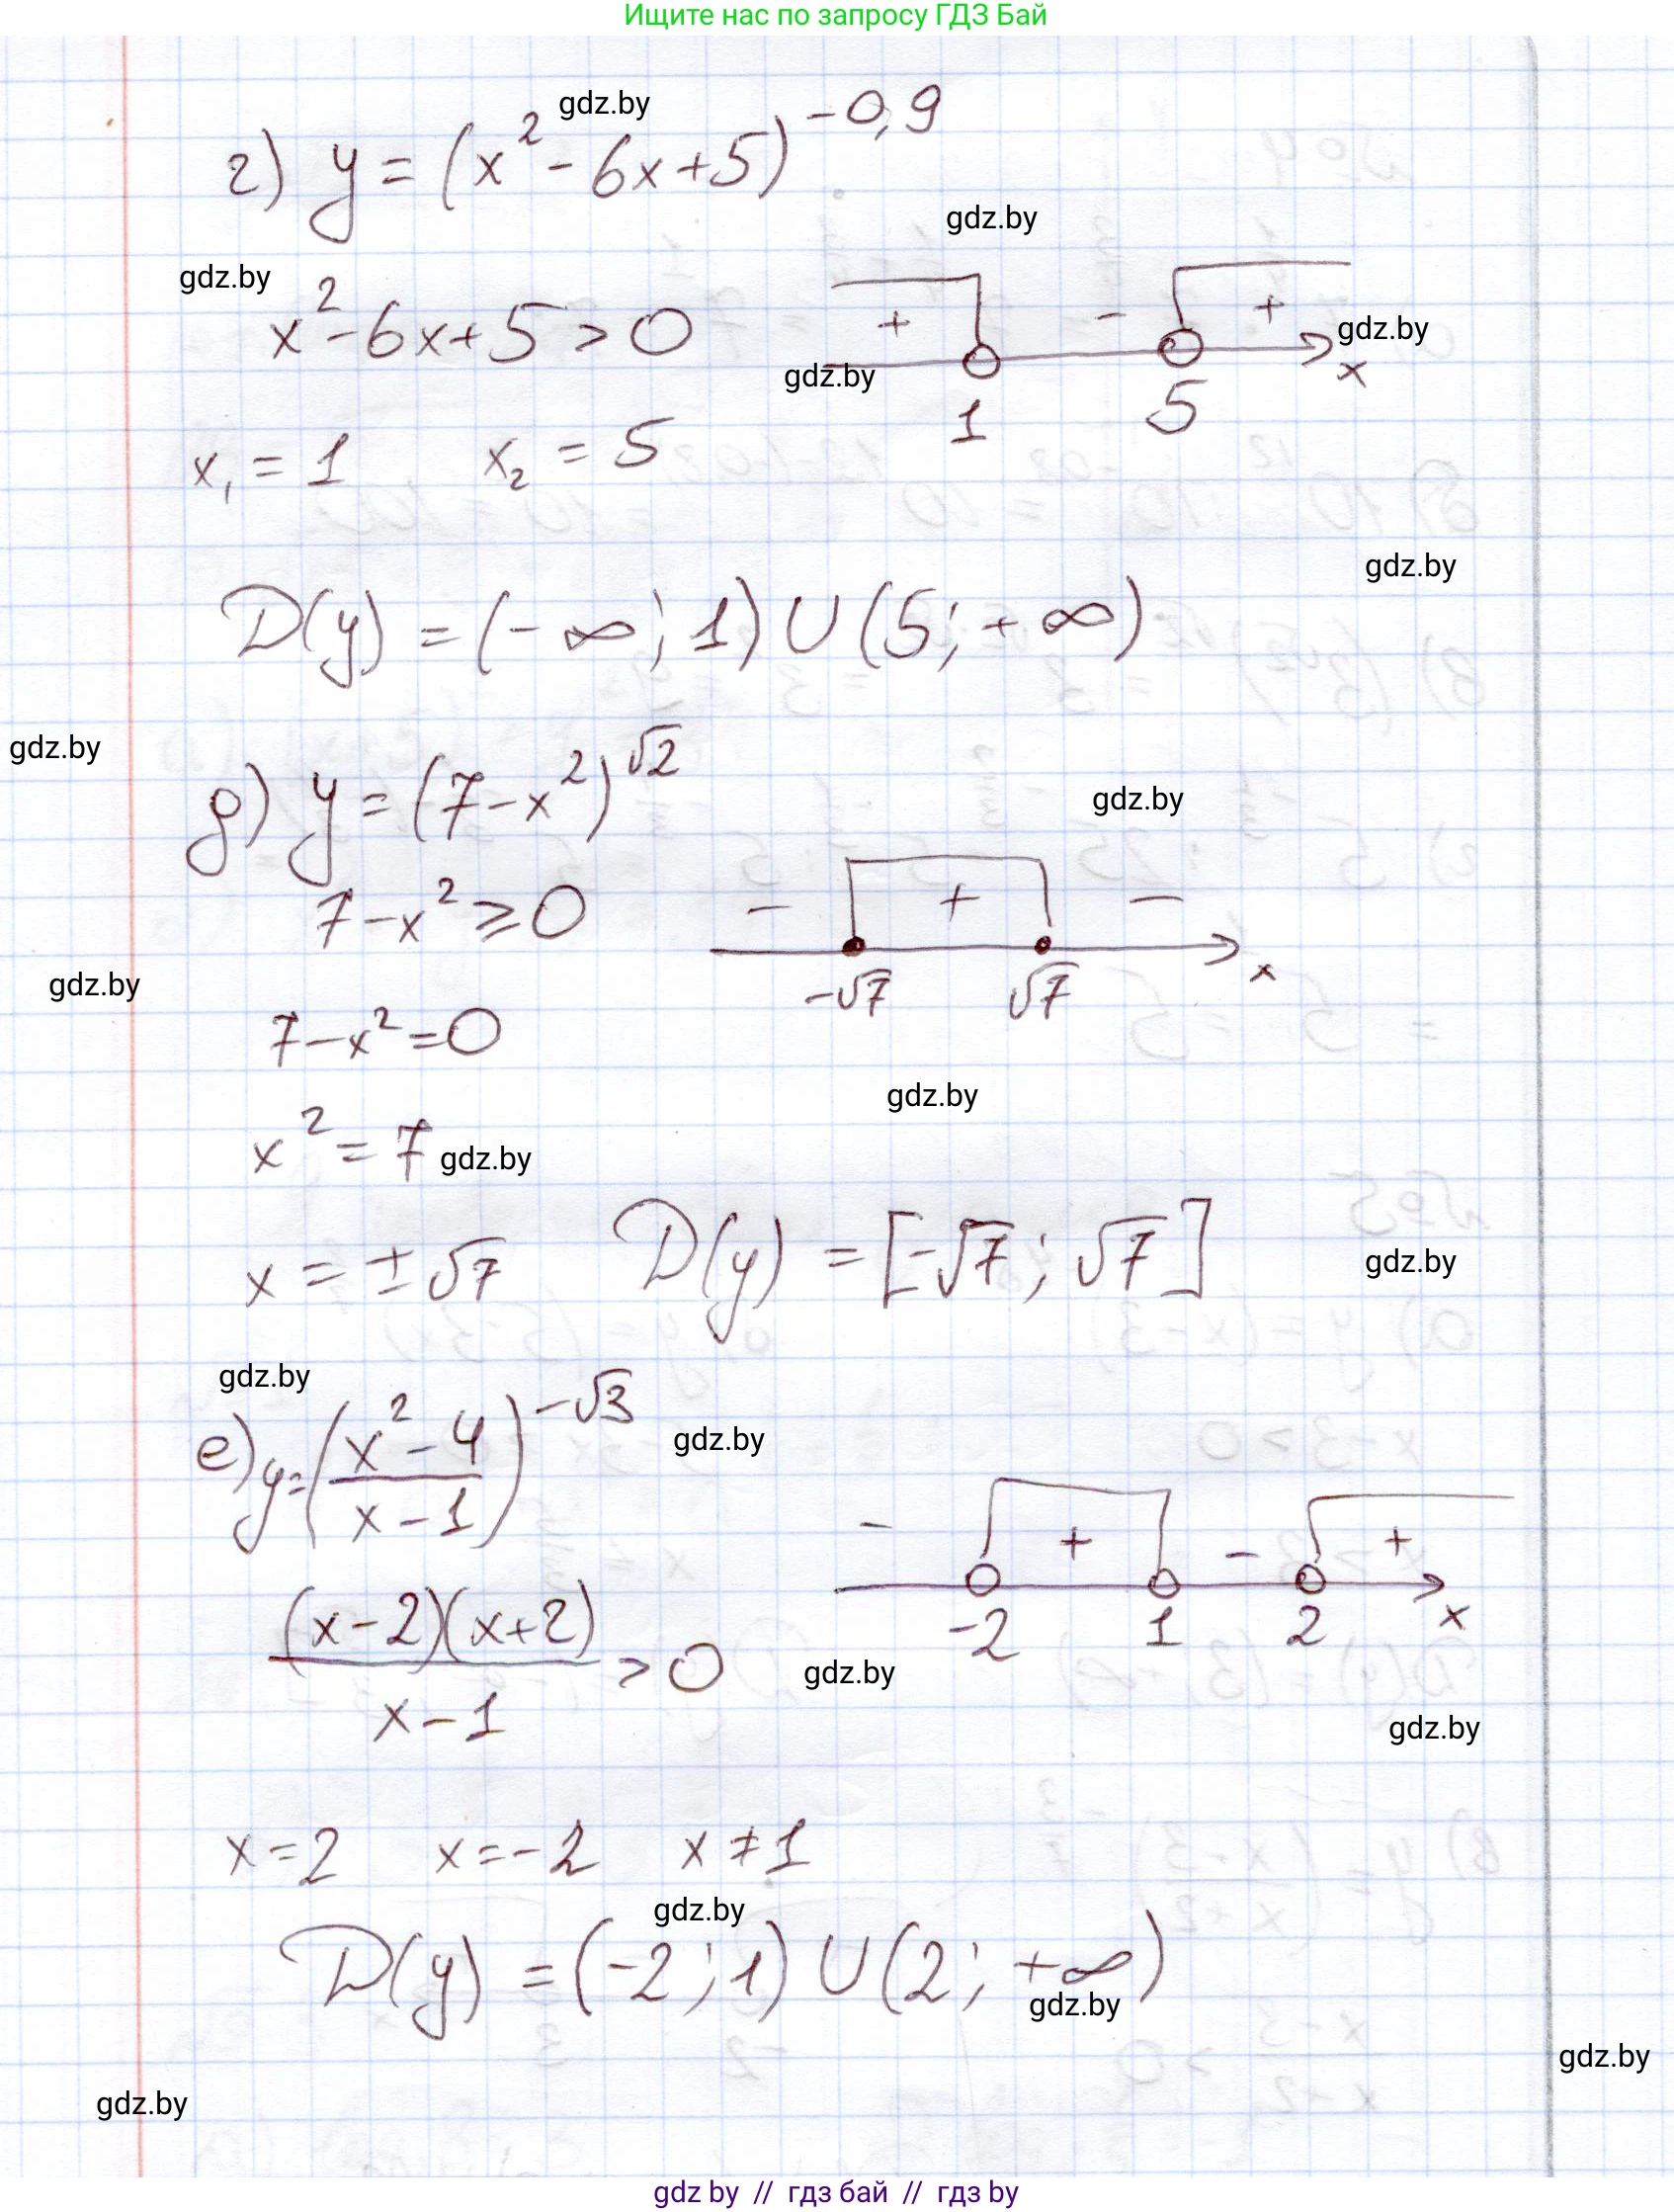 Ищите нас по запросу ГДЗ Бай
г) y = (x² - 6x + 5)^{-0,9}
gdz.by
gdz.by
gdz.by
x² - 6x + 5 > 0
+ - +
gdz.by
gdz.by
x
1 5
x₁ = 1 x₂ = 5
gdz.by
D(y) = (-∞; 1) ∪ (5; +∞)
gdz.by
д) y = (7 - x²)^{√2}
gdz.by
7 - x² ⩾ 0
- + -
x
-√7 √7
gdz.by
7 - x² = 0
gdz.by
x² = 7
gdz.by
x = ±√7 D(y) = [-√7; √7]
gdz.by
gdz.by
е) y = ((x² - 4)/(x - 1))^{-√3}
gdz.by
- + - +
-2 1 2 x
(x-2)(x+2)/(x-1) > 0
gdz.by
gdz.by
x = 2 x = -2 x ≠ 1
gdz.by
D(y) = (-2; 1) ∪ (2; +∞)
gdz.by
gdz.by
gdz.by
gdz by // гдз бай // гдз by